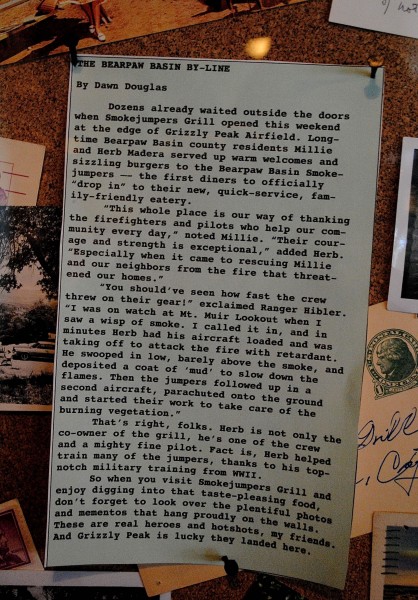 of not
THE BEARPAW BASIN BY-LINE
By Dawn Douglas
Dozens already waited outside the doors
when Smokejumpers Grill opened this weekend
at the edge of Grizzly Peak Airfield. Long-
time Bearpaw Basin county residents Millie
and Herb Madera served up warm welcomes and
sizzling burgers to the Bearpaw Basin Smoke-
jumpers -- the first diners to officially
"drop in" to their new, quick-service, fam-
ily-friendly eatery.
"This whole place is our way of thanking
the firefighters and pilots who help our com-
munity every day," noted Millie. "Their cour-
age and strength is exceptional," added Herb.
"Especially when it came to rescuing Millie
and our neighbors from the fire that threat-
ened our homes."
"You should've seen how fast the crew
threw on their gear!" exclaimed Ranger Hibler.
"I was on watch at Mt. Muir Lookout when I
saw a wisp of smoke. I called it in, and in
minutes Herb had his aircraft loaded and was
taking off to attack the fire with retardant.
He swooped in low, barely above the smoke, and
deposited a coat of 'mud' to slow down the
flames. Then the jumpers followed up in a
second aircraft, parachuted onto the ground
and started their work to take care of the
burning vegetation."
That's right, folks. Herb is not only the
co-owner of the grill, he's one of the crew
and a mighty fine pilot. Fact is, Herb helped
train many of the jumpers, thanks to his top-
notch military training from WWII.
So when you visit Smokejumpers Grill and
enjoy digging into that taste-pleasing food,
don't forget to look over the plentiful photos
and mementos that hang proudly on the walls.
These are real heroes and hotshots, my friends.
And Grizzly Peak is lucky they landed here.